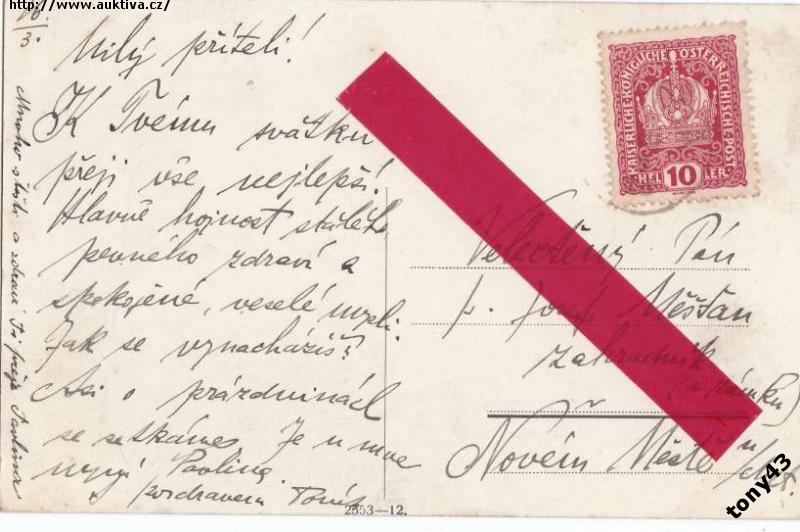 http://www.auktiva.cz/
16.
3.
Milý příteli!
K Tvému svátku
přeji vše nejlepší!
Hlavně hojnost stálého
pevného zdraví a
spokojené, veselé mysli.
Jak se vynacházíš?
Asi o prázdninách
se setkáme. Je u mne
nyní Pavlina.
S pozdravem
Mnoho štěstí a zdraví Ti přeje Pavlina
KAISERLICHE KÖNIGLICHE ÖSTERREICHISCHE POST
HEL 10 LER
Veletěný Pán
p. Josef Měšťan
zahradník
(v zámku)
v
Novém Městě n/
2553—12.
tony43